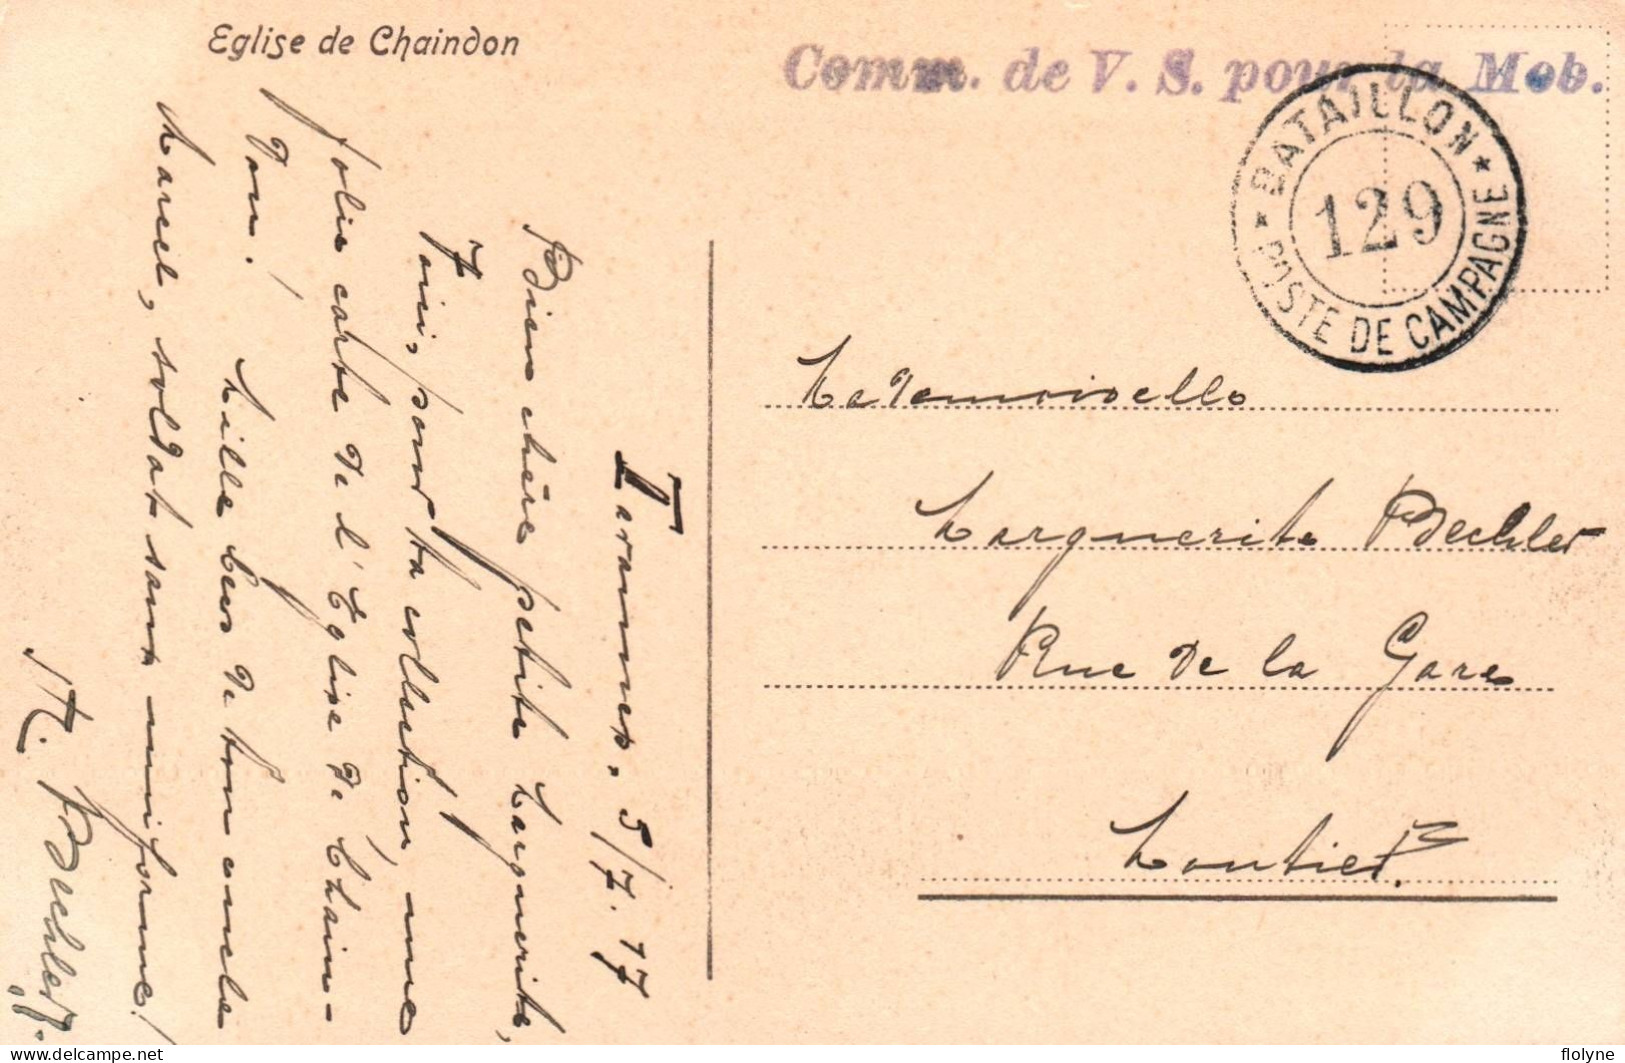 Eglise de Chaindon
Comm. de V. S. pour la Mob.
* BATAILLON *
129
POSTE DE CAMPAGNE
Tavannes, 5/7.17
Bien chère petite Marguerite,
Voici, pour ta collection, une
jolie carte de l'Eglise de Chain-
don! Mille becs de ton oncle
Marcel, soldat sans uniforme!
M. Bechler.
Mademoiselle
Marguerite Bechler
Rue de la Gare
Moutier
flolyne